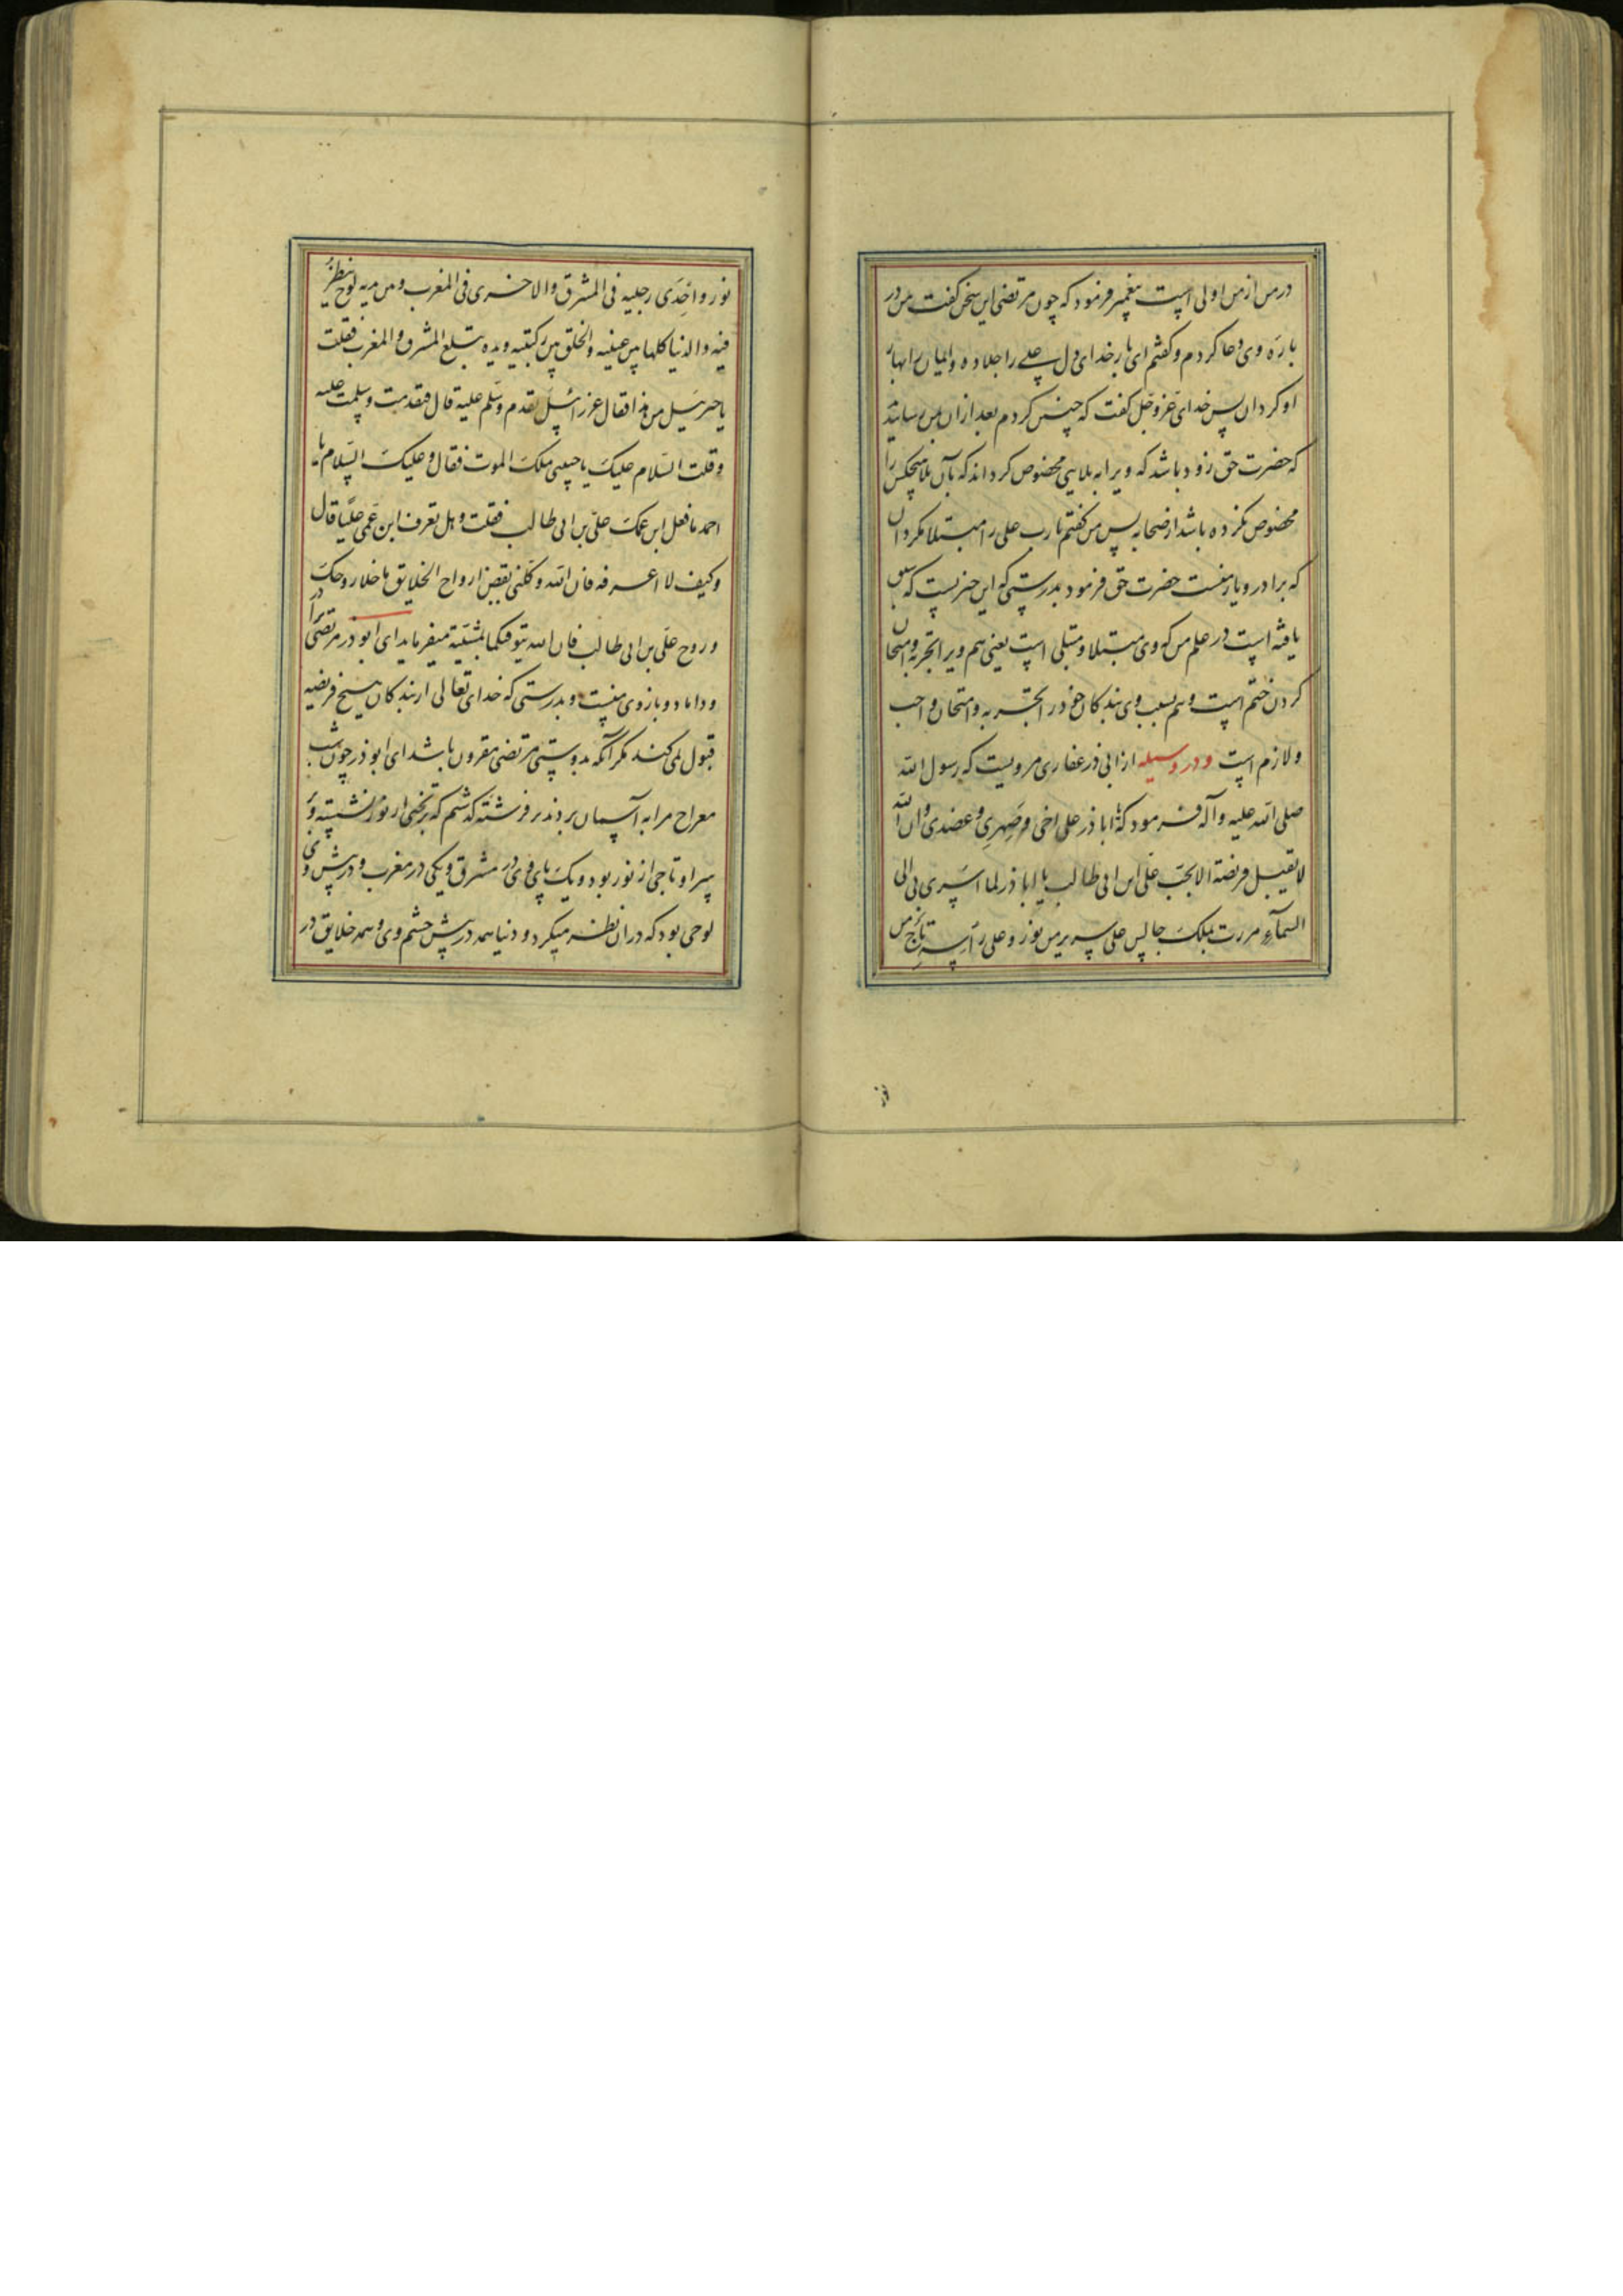 در من از من اولی است پیغمبر فرمود که چون مرتضی این سخن گفت من در
باره وی دعا کردم و گفتم ای بار خدای دل علی را جلا ده و ایمان را بهار
او کردان پس خدای عز و جل گفت که چنین کردم بعد ازان بمن رسانید
که حضرت حق زود باشد که ویرا به بلایی مخصوص کرداند که بآن بلا هیچکس را
مخصوص نکرده باشد از صحابه پس من گفتم یا رب علی را مبتلا مکردان
که برادر و یار منست حضرت حق فرمود بدرستی که این چیزیست که سبق
یافته است در علم من که وی مبتلا و مبتلی است یعنی هم ویرا تجربه و امتحان
کردن ختم است و هم بسبب وی بندکان خود را تجربه و امتحان واجب
و لازم است و در وسیله از ابی ذر غفاری مرویست که رسول الله
صلی الله علیه و آله فرمود که یا اباذر علی اخی و صهری و عضدی و ان الله
لا یقبل فریضة الا بحب علی ابن ابی طالب یا اباذر لما اسری بی الی
السماء مررت بملک جالس علی سریر من نور و علی رأسه تاج من
نور
نور و احدی رجلیه فی المشرق والاخری فی المغرب و بین یدیه لوح ینظر
فیه والدنیا کلها بین عینیه والخلق بین رکبتیه ویده تبلغ المشرق والمغرب فقلت
یا جبرئیل من هذا فقال عزرائیل تقدم وسلم علیه قال فتقدمت وسلمت علیه
وقلت السلام علیک یا حبیبی ملک الموت فقال وعلیک السلام یا
احمد ما فعل ابن عمک علی بن ابی طالب فقلت وهل تعرف ابن عمی علیا قال
وکیف لا اعرفه فان الله وکلنی بقبض ارواح الخلایق ما خلا روحک
وروح علی بن ابی طالب فان الله یتوفیکما بمشیته میفرماید ای ابوذر مرتضی برادر
و داماد و بازوی منست و بدرستی که خدای تعالی از بندکان هیچ فریضه
قبول نمی کند مکر آنکه بدوستی مرتضی مقرون باشد ای ابوذر چون شب
معراج مرا به آسمان بردند بر فرشته کذشتم که بر تختی از نور نشسته و بر
سر او تاجی از نور بود و یک پای وی در مشرق و یکی در مغرب و در پیش وی
لوحی بود که دران نظر میکرد و دنیا همه در پیش چشم وی و همه خلایق در